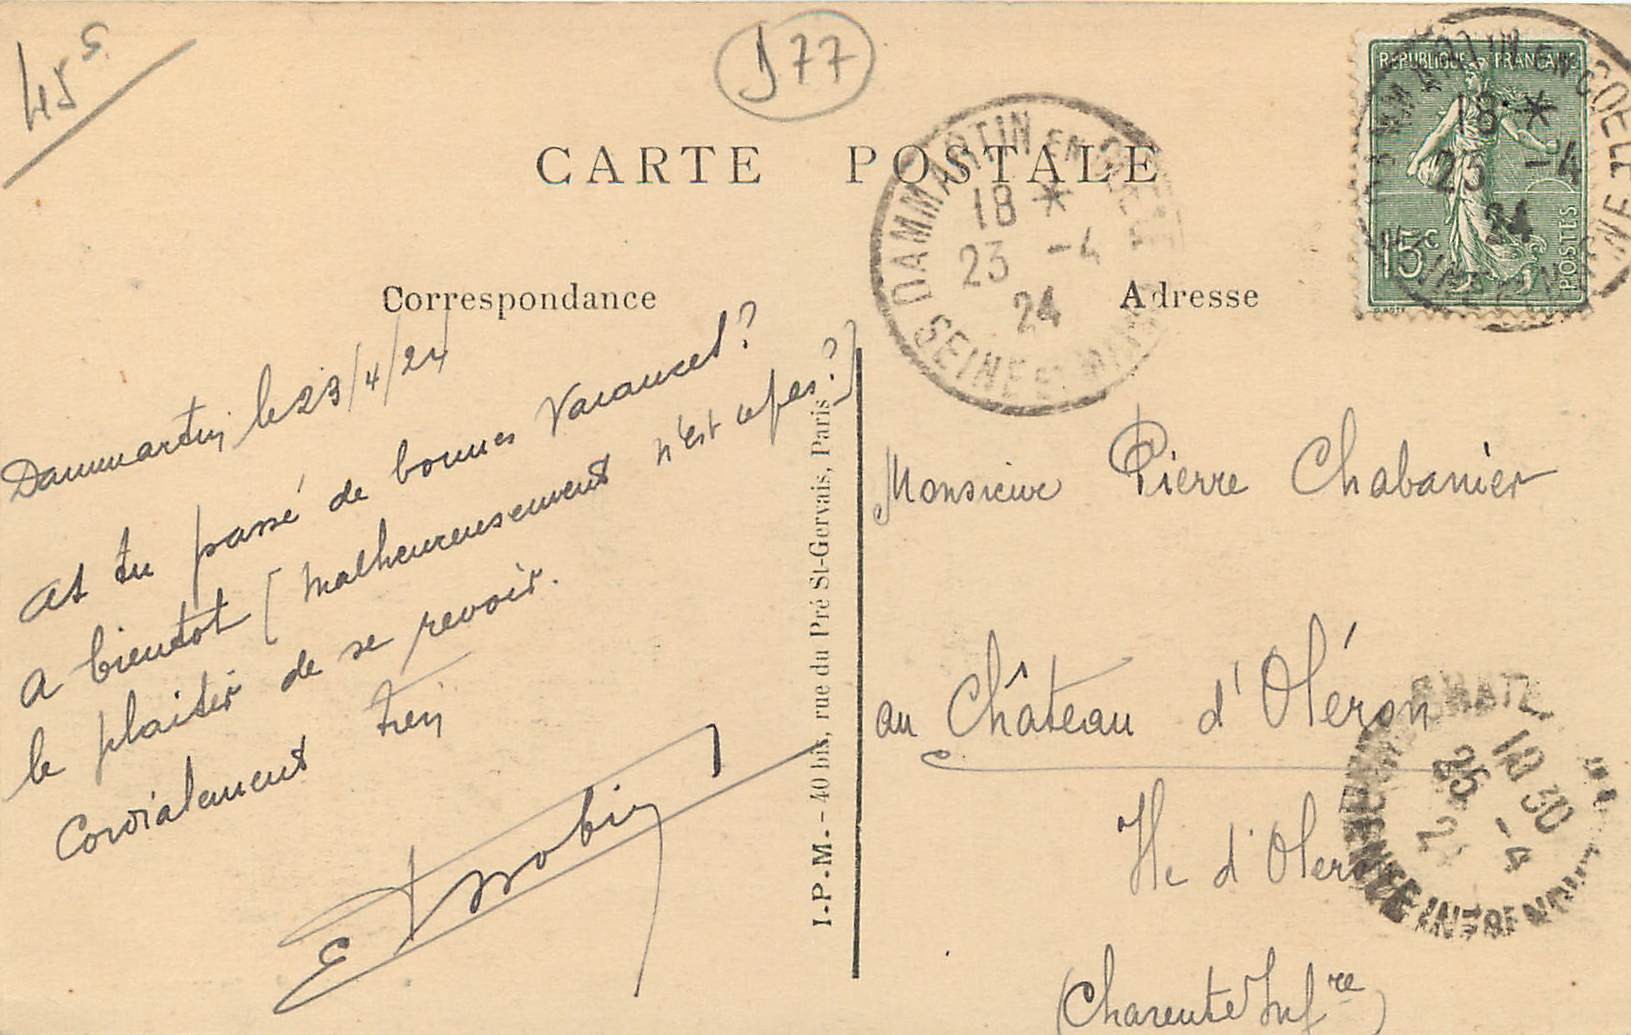 45
J77
CARTE POSTALE
Correspondance
Adresse
REPUBLIQUE FRANÇAISE
15c
POSTES
DAMMARTIN EN GOELE
18 *
23 -4
24
SEINE ET MARNE
DAMMARTIN EN GOELE
18 *
23 -4
24
Dammartin, le 23/4/24
As tu passé de bonnes Vacances ?
a bientot (malheureusement n'est ce pas ?)
le plaisir de se revoir.
Cordialement tien
Monsieur Pierre Chabanier
au Château d'Oléron
Ile d'Oleron
(Charente Infre)
10 30
25 -4
CHARENTE INFERIEURE
I-P-M. - 40 bis, rue du Pré St-Gervais, Paris